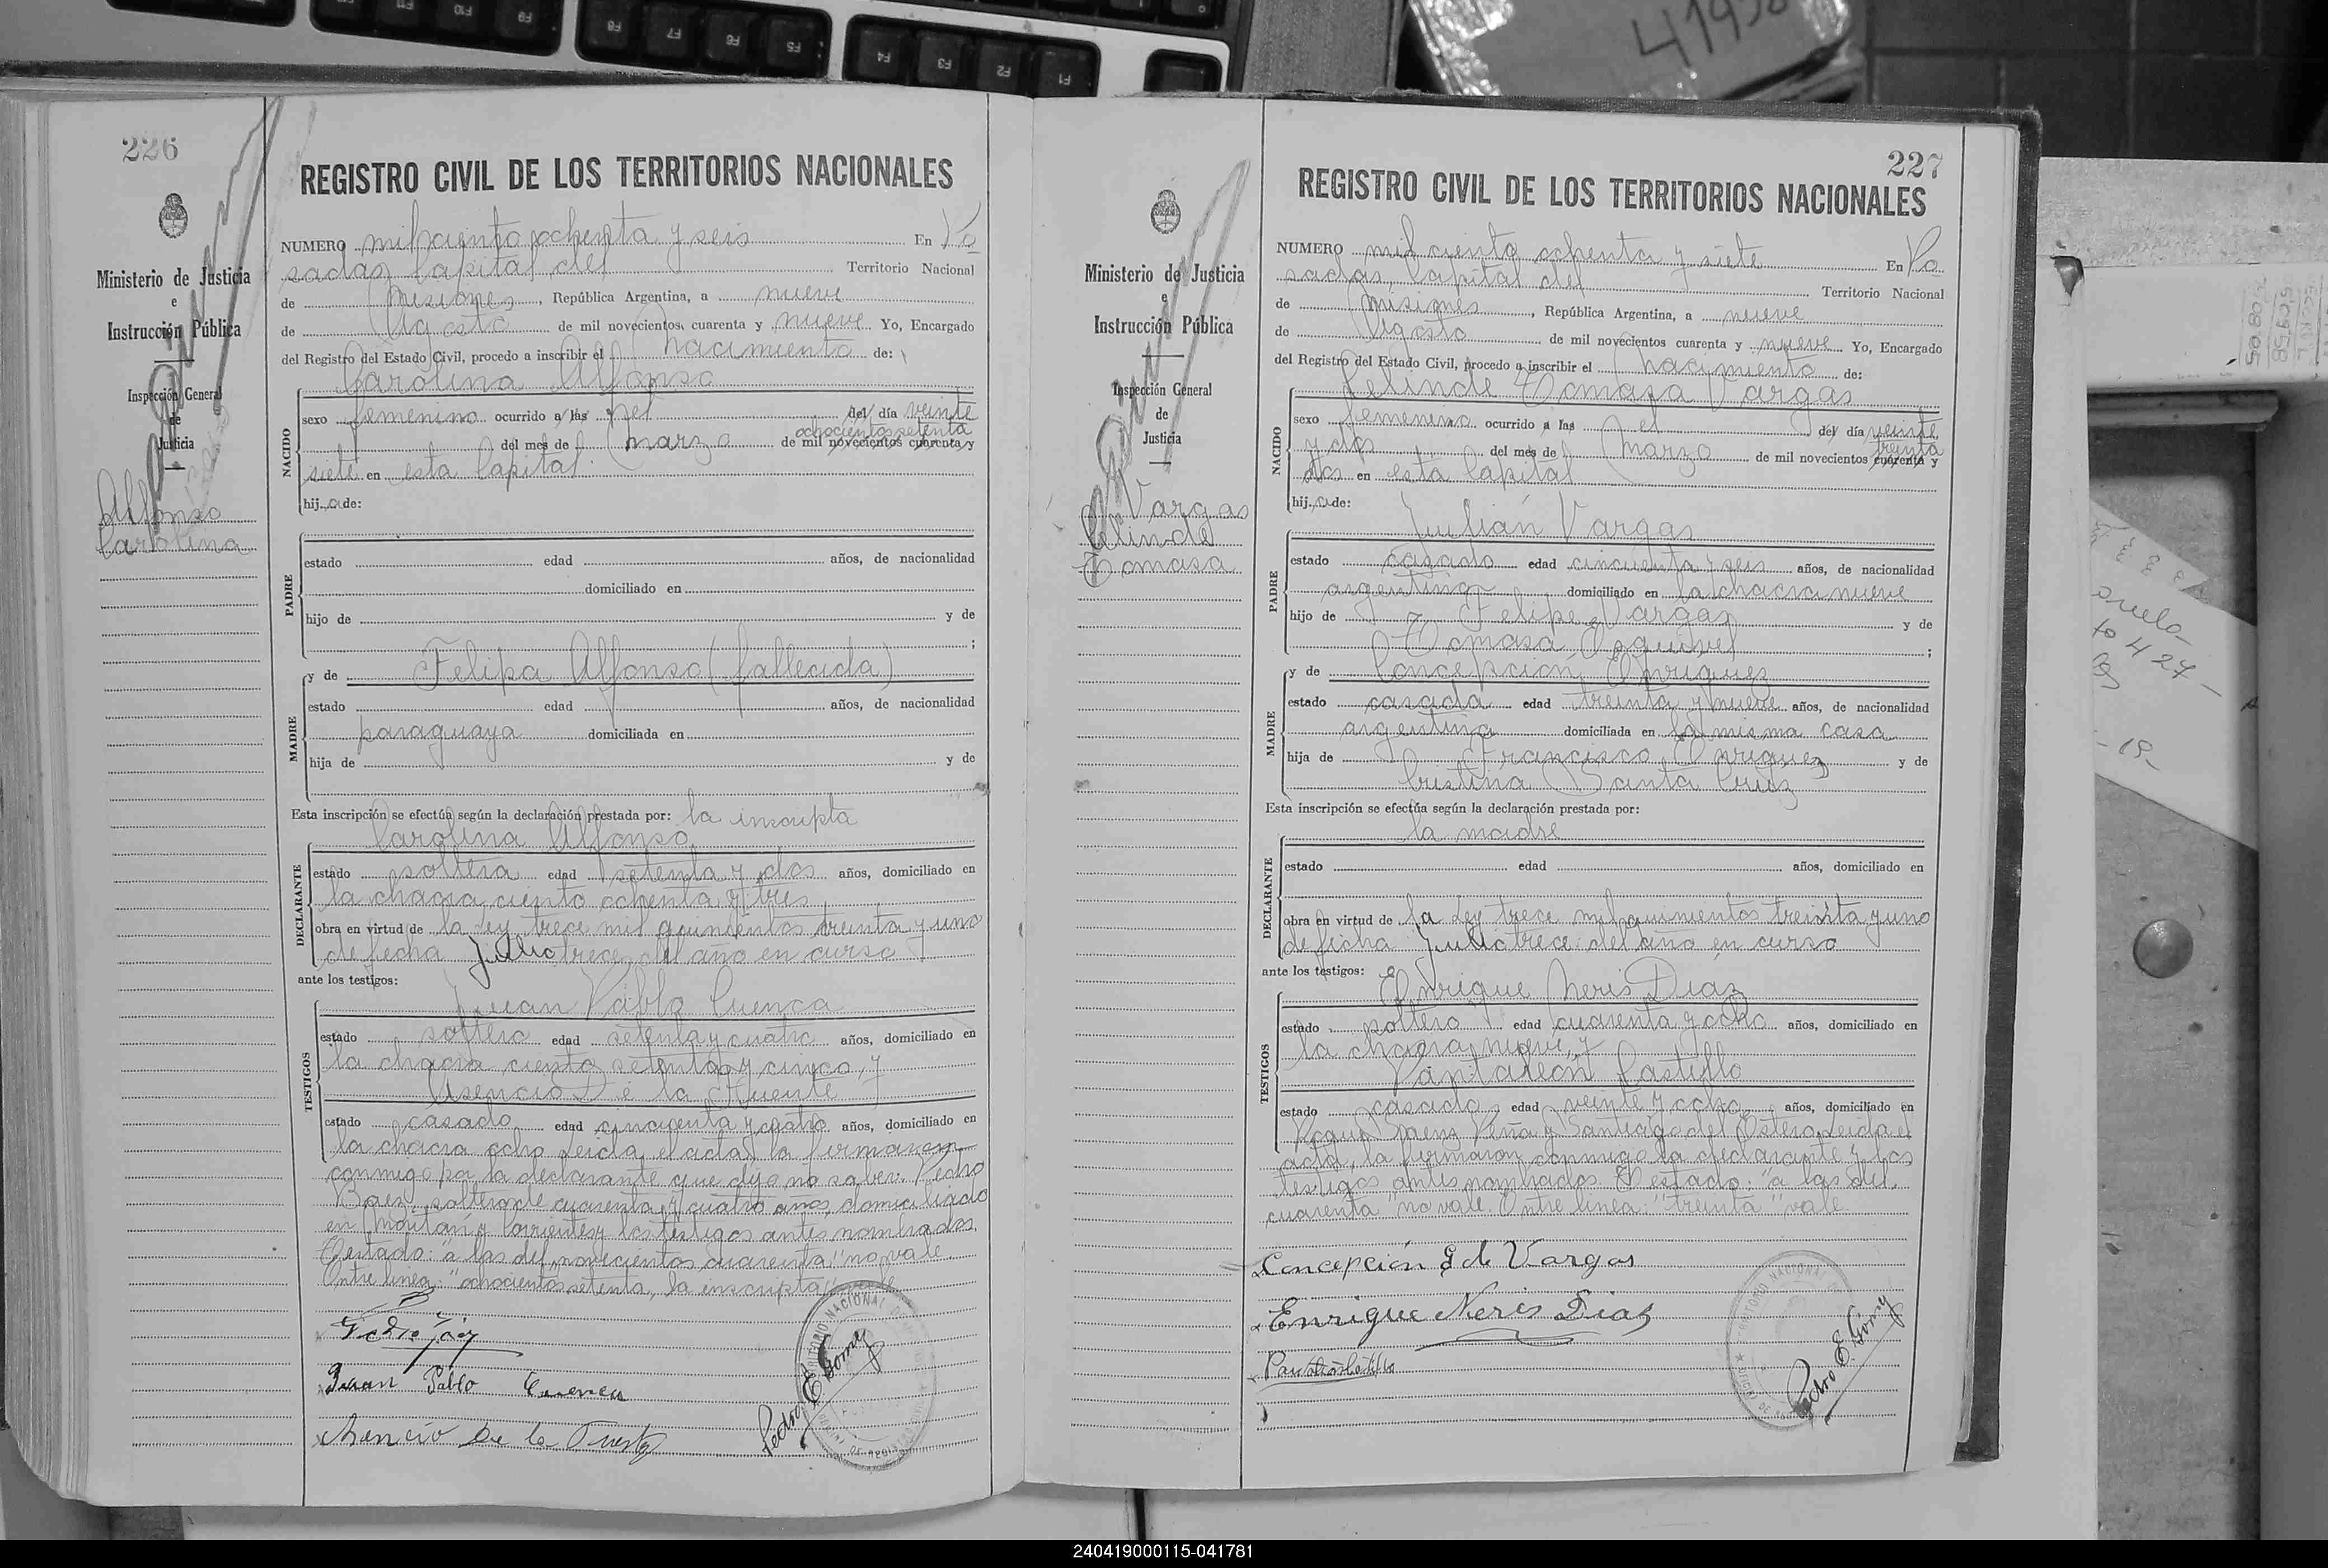 F11
F10
F9
F8
F7
F6
F5
F4
F3
F2
F1
226
REGISTRO CIVIL DE LOS TERRITORIOS NACIONALES
Ministerio de Justicia
e
Instrucción Pública
Inspección General
de
Justicia
Alfonso
Carolina
NUMERO mil ciento ochenta y seis En Po
sadas, Capital del Territorio Nacional
de Misiones, República Argentina, a nueve
de Agosto de mil novecientos cuarenta y nueve Yo, Encargado
del Registro del Estado Civil, procedo a inscribir el nacimiento de:
Carolina Alfonso
NACIDO
sexo femenino ocurrido a las el del día veinte
ochocientos setenta
del mes de marzo de mil novecientos cuarenta y
siete en esta Capital.
hija de:
PADRE
estado edad años, de nacionalidad
domiciliado en
hijo de y de
;
MADRE
y de Felipa Alfonso (fallecida)
estado edad años, de nacionalidad
paraguaya domiciliada en
hija de y de
Esta inscripción se efectúa según la declaración prestada por: la inscripta
Carolina Alfonso
DECLARANTE
estado soltera edad setenta y dos años, domiciliado en
la chacra ciento ochenta y tres
obra en virtud de la Ley trece mil quinientos treinta y uno
de fecha Julio trece del año en curso
ante los testigos:
Juan Pablo Cuenca
TESTIGOS
estado soltero edad setenta y cuatro años, domiciliado en
la chacra ciento setenta y cinco, y
Asencio De la Fuente
estado casado edad cincuenta y cuatro años, domiciliado en
la chacra ocho Leida el acta, la firmaron
conmigo por la declarante que dijo no saber: Pedro
Baez, soltero de cuarenta y cuatro años, domiciliado
en Moritán y Corrientes y los testigos antes nombrados.
Testado: "a las del, novecientos cuarenta" no vale.
Entre linea: "ochocientos setenta, la inscripta" vale
Juan Pablo Cuenca
Asencio De la Fuente
Pedro E. Gomez
227
REGISTRO CIVIL DE LOS TERRITORIOS NACIONALES
Ministerio de Justicia
e
Instrucción Pública
Inspección General
de
Justicia
Vargas
Celinde
Tomasa
NUMERO mil ciento ochenta y siete En Po
sadas, Capital del Territorio Nacional
de Misiones, República Argentina, a nueve
de Agosto de mil novecientos cuarenta y nueve Yo, Encargado
del Registro del Estado Civil, procedo a inscribir el nacimiento de:
Celinde Tomasa Vargas
NACIDO
sexo femenino ocurrido a las el del día veinte
treinta
y dos del mes de marzo de mil novecientos cuarenta y
dos en esta Capital
hija de:
Julián Vargas
PADRE
estado casado edad cincuenta y seis años, de nacionalidad
argentino domiciliado en la chacra nueve
hijo de Felipe Vargas y de
Tomasa Esquivel ;
MADRE
y de Concepción Enriquez
estado casada edad treinta y nueve años, de nacionalidad
argentina domiciliada en la misma casa
hija de Francisco Enriquez y de
Cristina Santa Cruz
Esta inscripción se efectúa según la declaración prestada por:
la madre
DECLARANTE
estado edad años, domiciliado en
obra en virtud de la Ley trece mil quinientos treinta y uno
de fecha Julio trece del año en curso
ante los testigos:
Enrique Neris Diaz
TESTIGOS
estado soltero edad cuarenta y ocho años, domiciliado en
la chacra nueve, y
Pantaleón Castillo
estado casado edad veinte y ocho años, domiciliado en
Roque Saenz Peña y Santiago del Estero. Leida el
acta, la firmaron conmigo la declarante y los
testigos antes nombrados. Testado: "a las del,
cuarenta" no vale. Entre linea: "treinta" vale.
Concepción E de Vargas
Enrique Neris Diaz
Pedro E. Gomez
240419000115-041781